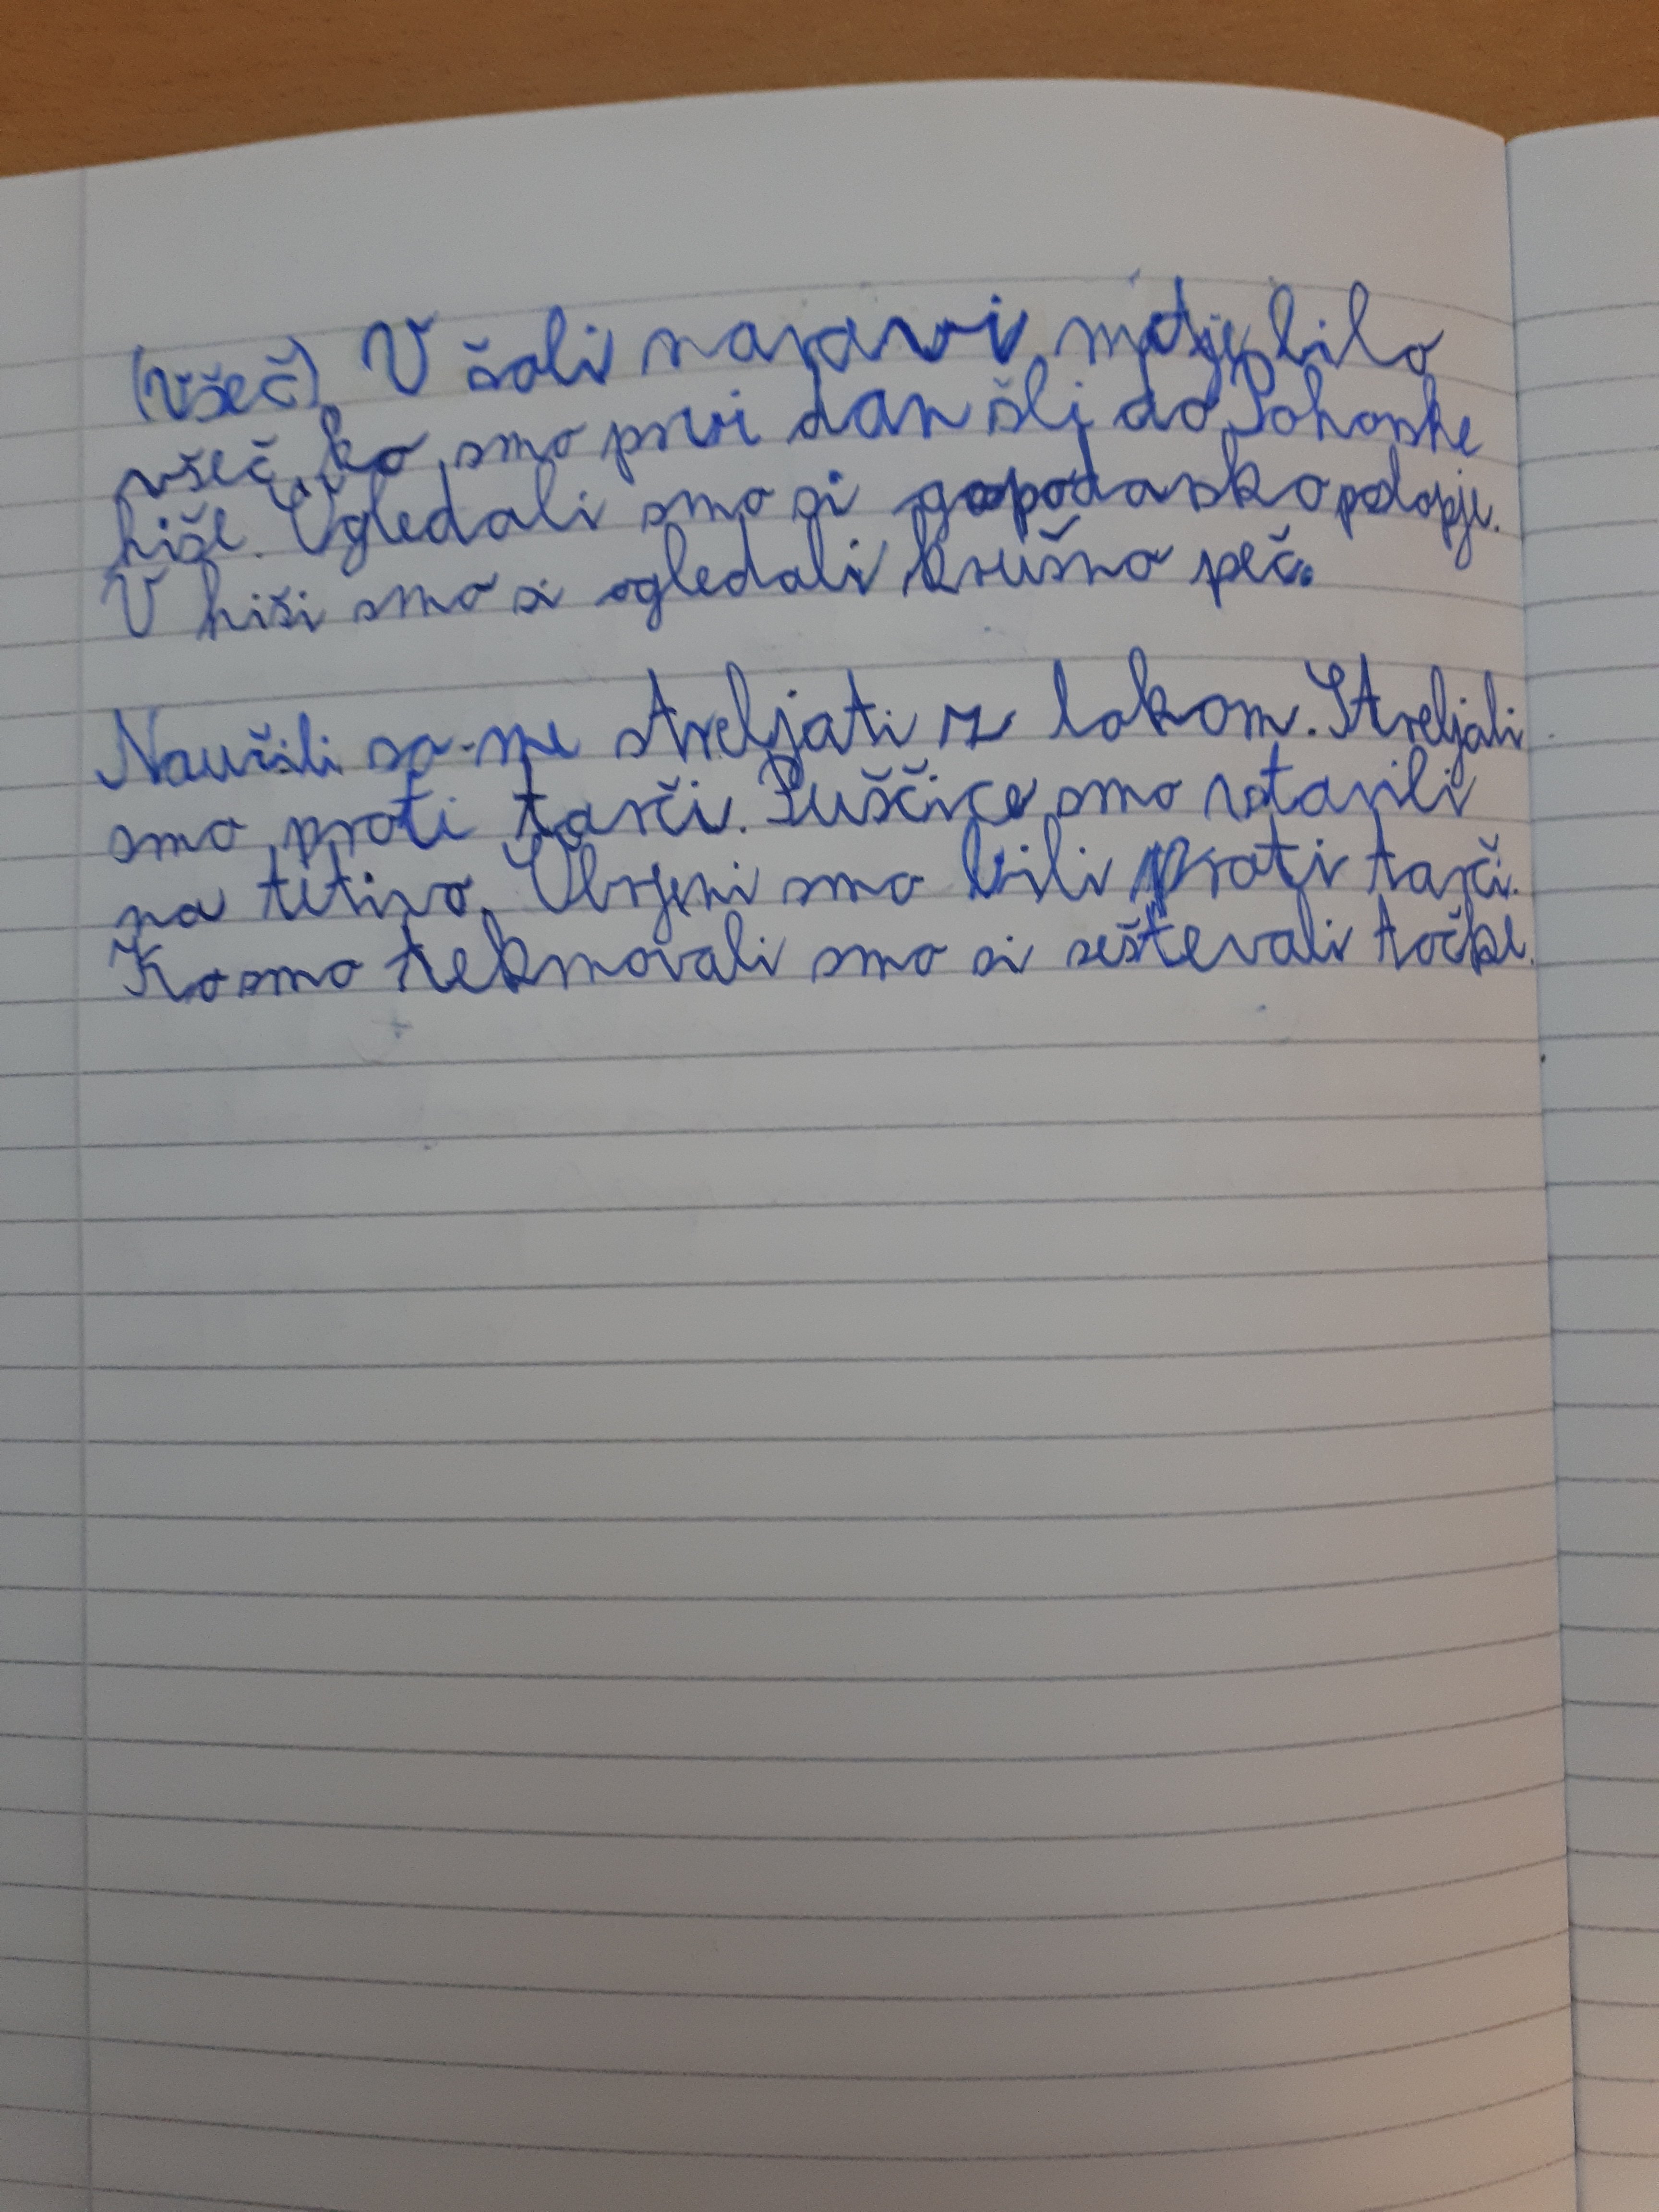 (všeč) V šoli naravi mi je bilo
všeč, ko smo prvi dan šli do Pohorske
hiše. Ogledali smo si gospodarsko poslopje.
V hiši smo si ogledali krušno peč.
Naučili so me streljati z lokom. Streljali
smo proti tarči. Puščice smo vstavili
na tetivo. Obrjeni smo bili proti tarči.
Ko smo tekmovali smo si seštevali točke.